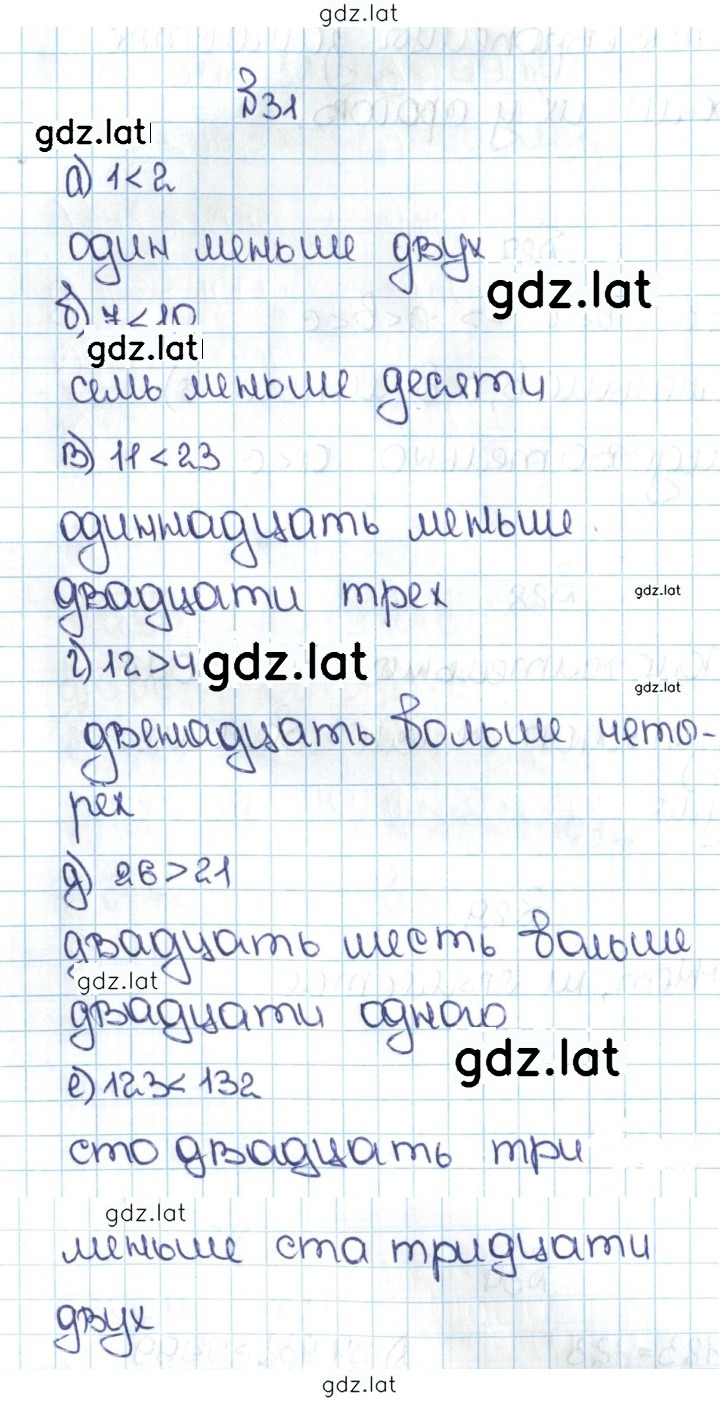 gdz.lat
№31
gdz.lat
а) 1<2
один меньше двух
gdz.lat
б) 7<10
gdz.lat
семь меньше десяти
в) 11<23
одиннадцать меньше
двадцати трех
gdz.lat
г) 12>4
gdz.lat
gdz.lat
двенадцать больше четы-
рёх
д) 26>21
двадцать шесть больше
gdz.lat
двадцати одного
gdz.lat
е) 123<132
сто двадцать три
gdz.lat
меньше ста тридцати
двух
gdz.lat